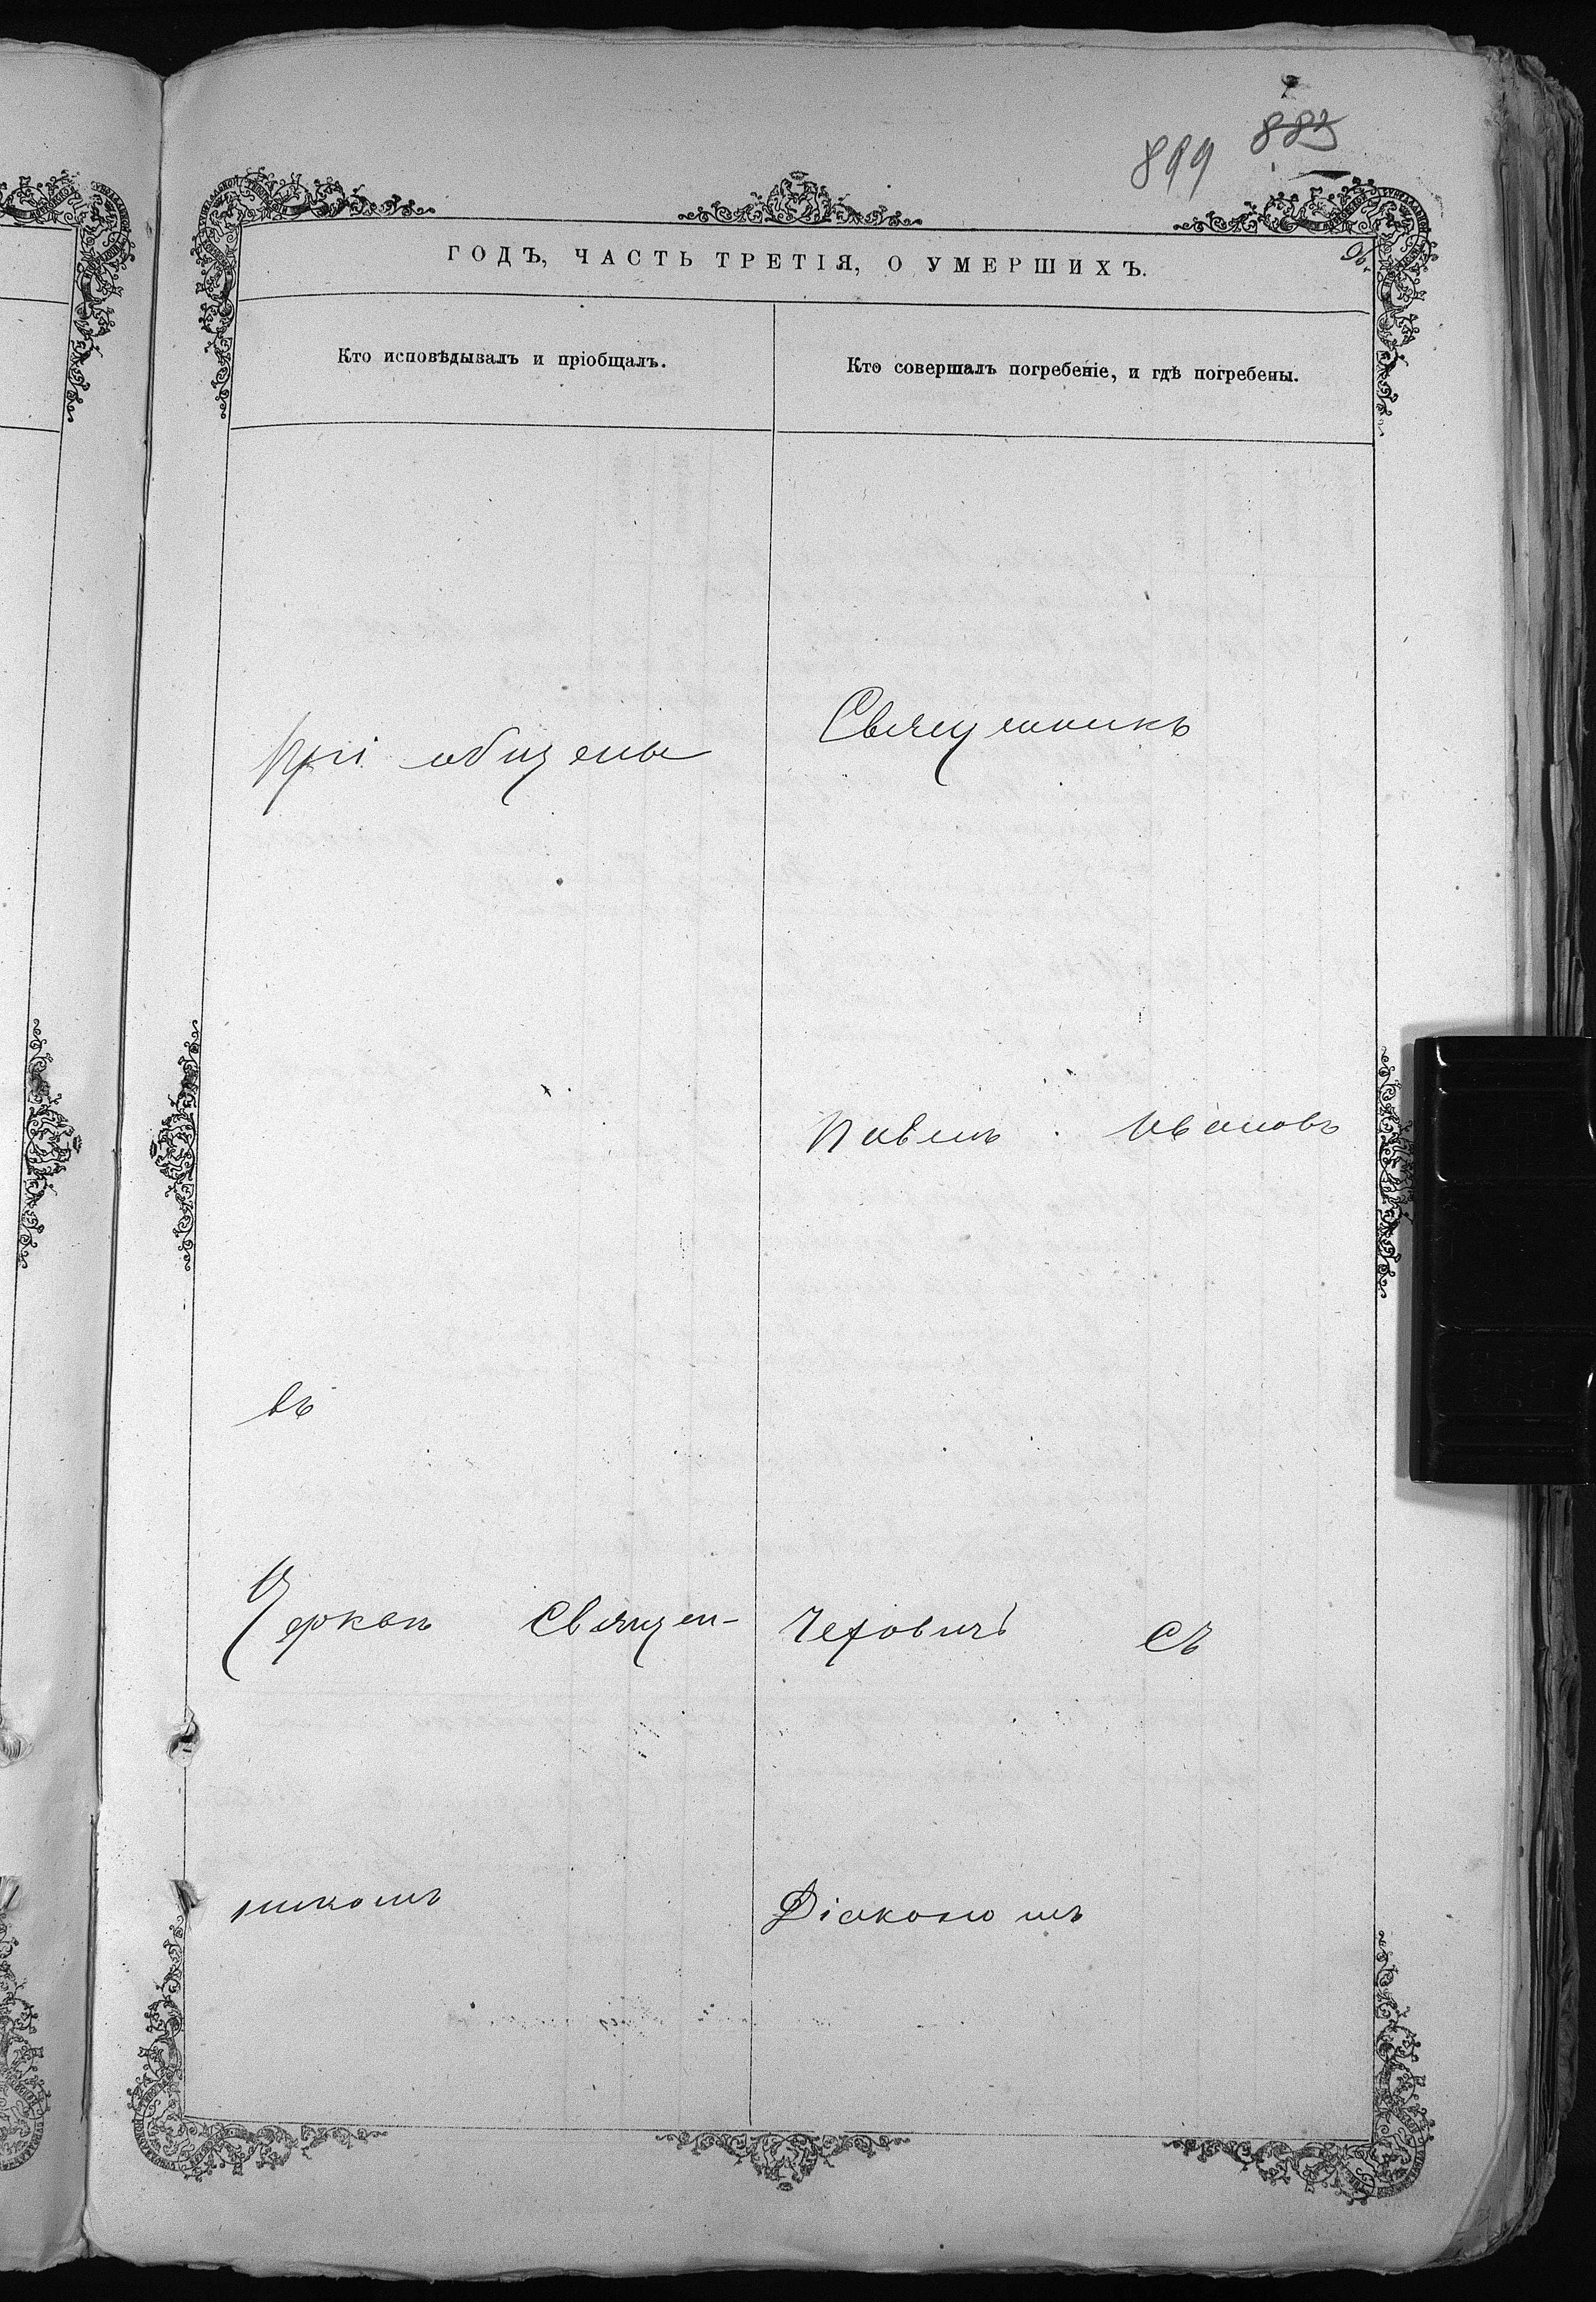 899 883
ГОДЪ, ЧАСТЬ ТРЕТІЯ, О УМЕРШИХЪ.
Кто исповѣдывалъ и пріобщалъ.
Кто совершалъ погребеніе, и гдѣ погребены.
прі общены
Священникъ
Павелъ Ивановъ
въ
Церкви Священ-
Чехович съ
никомъ
Діакономъ